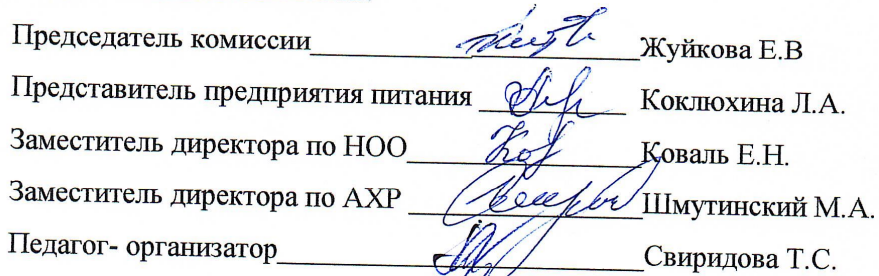 Председатель комиссии Жуйкова Е.В
Представитель предприятия питания Коклюхина Л.А.
Заместитель директора по НОО Коваль Е.Н.
Заместитель директора по АХР Шмутинский М.А.
Педагог- организатор Свиридова Т.С.